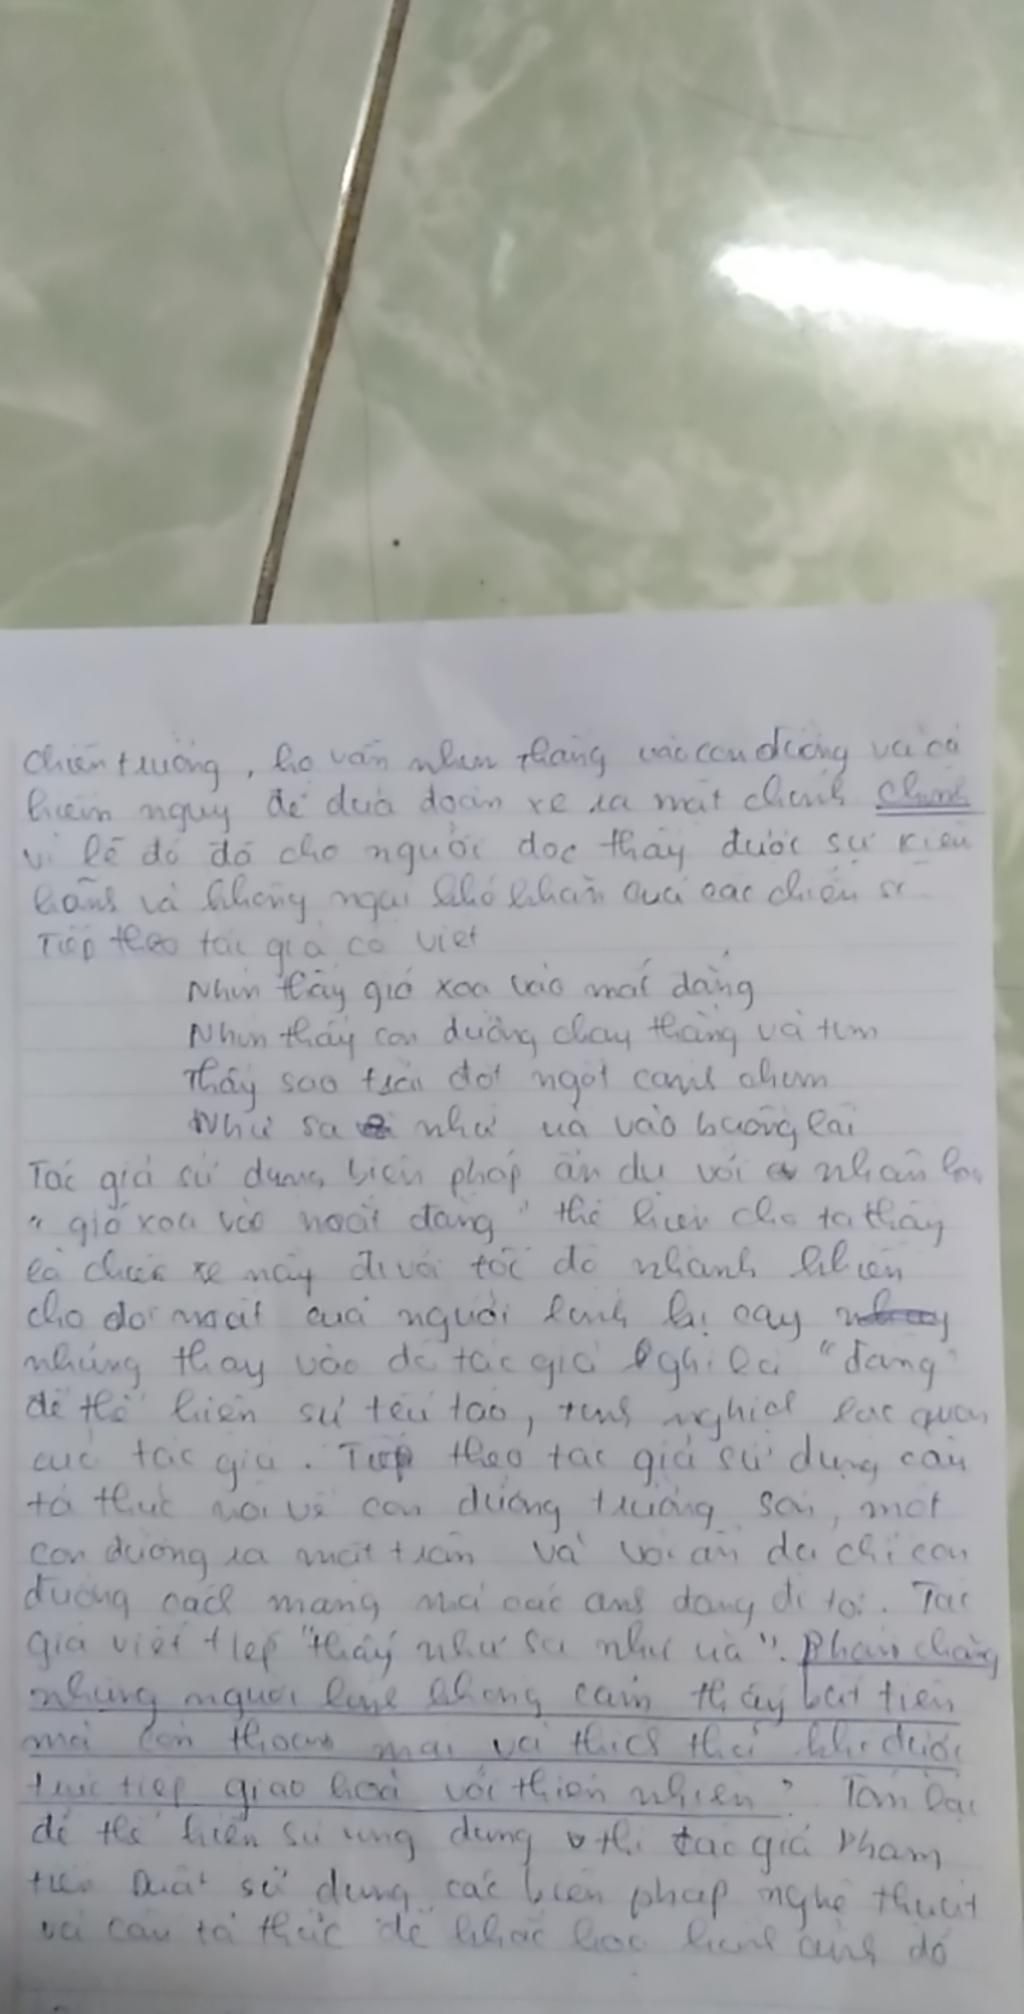 chiến trường, họ vẫn nhìn thẳng vào con đường và có
hiểm nguy để đưa đoàn xe ra mặt chính chính
vì lẽ đó đó cho người đọc thấy được sự kiêu
hãnh và không ngại khó khăn của các chiến sĩ
Tiếp theo tác giả có viết
Nhìn thấy gió xoa vào mắt đắng
Nhìn thấy con đường chạy thẳng và tim
Thấy sao trời đột ngột cánh chim
Như sa như ùa vào buồng lái
Tác giả sử dụng biện pháp ẩn dụ với nhân
" gió xoa vào mắt đắng " thể hiện cho ta thấy
là chiếc xe này đi với tốc độ nhanh khiến
cho đôi mắt của người lính bị cay
nhưng thay vào đó tác giả ghi là "đắng"
để thể hiện sự tếu táo, tinh nghịch lạc quan
của tác giả. Tiếp theo tác giả sử dụng câu
tả thực nói về con đường trường sơn, một
con đường ra mặt trận và với ẩn dụ chỉ con
đường cách mạng mà các anh đang đi tới. Tác
giả viết tiếp "thấy như sa như ùa". Phải chăng
những người lính không cảm thấy bất tiện
mà còn thoải mái và thích thú khi được
trực tiếp giao hoà với thiên nhiên? Tóm lại
để thể hiện sự ung dung thì tác giả Phạm
tiến Duật sử dụng các biện pháp nghệ thuật
và câu tả thực để khắc hoạ hình ảnh đó